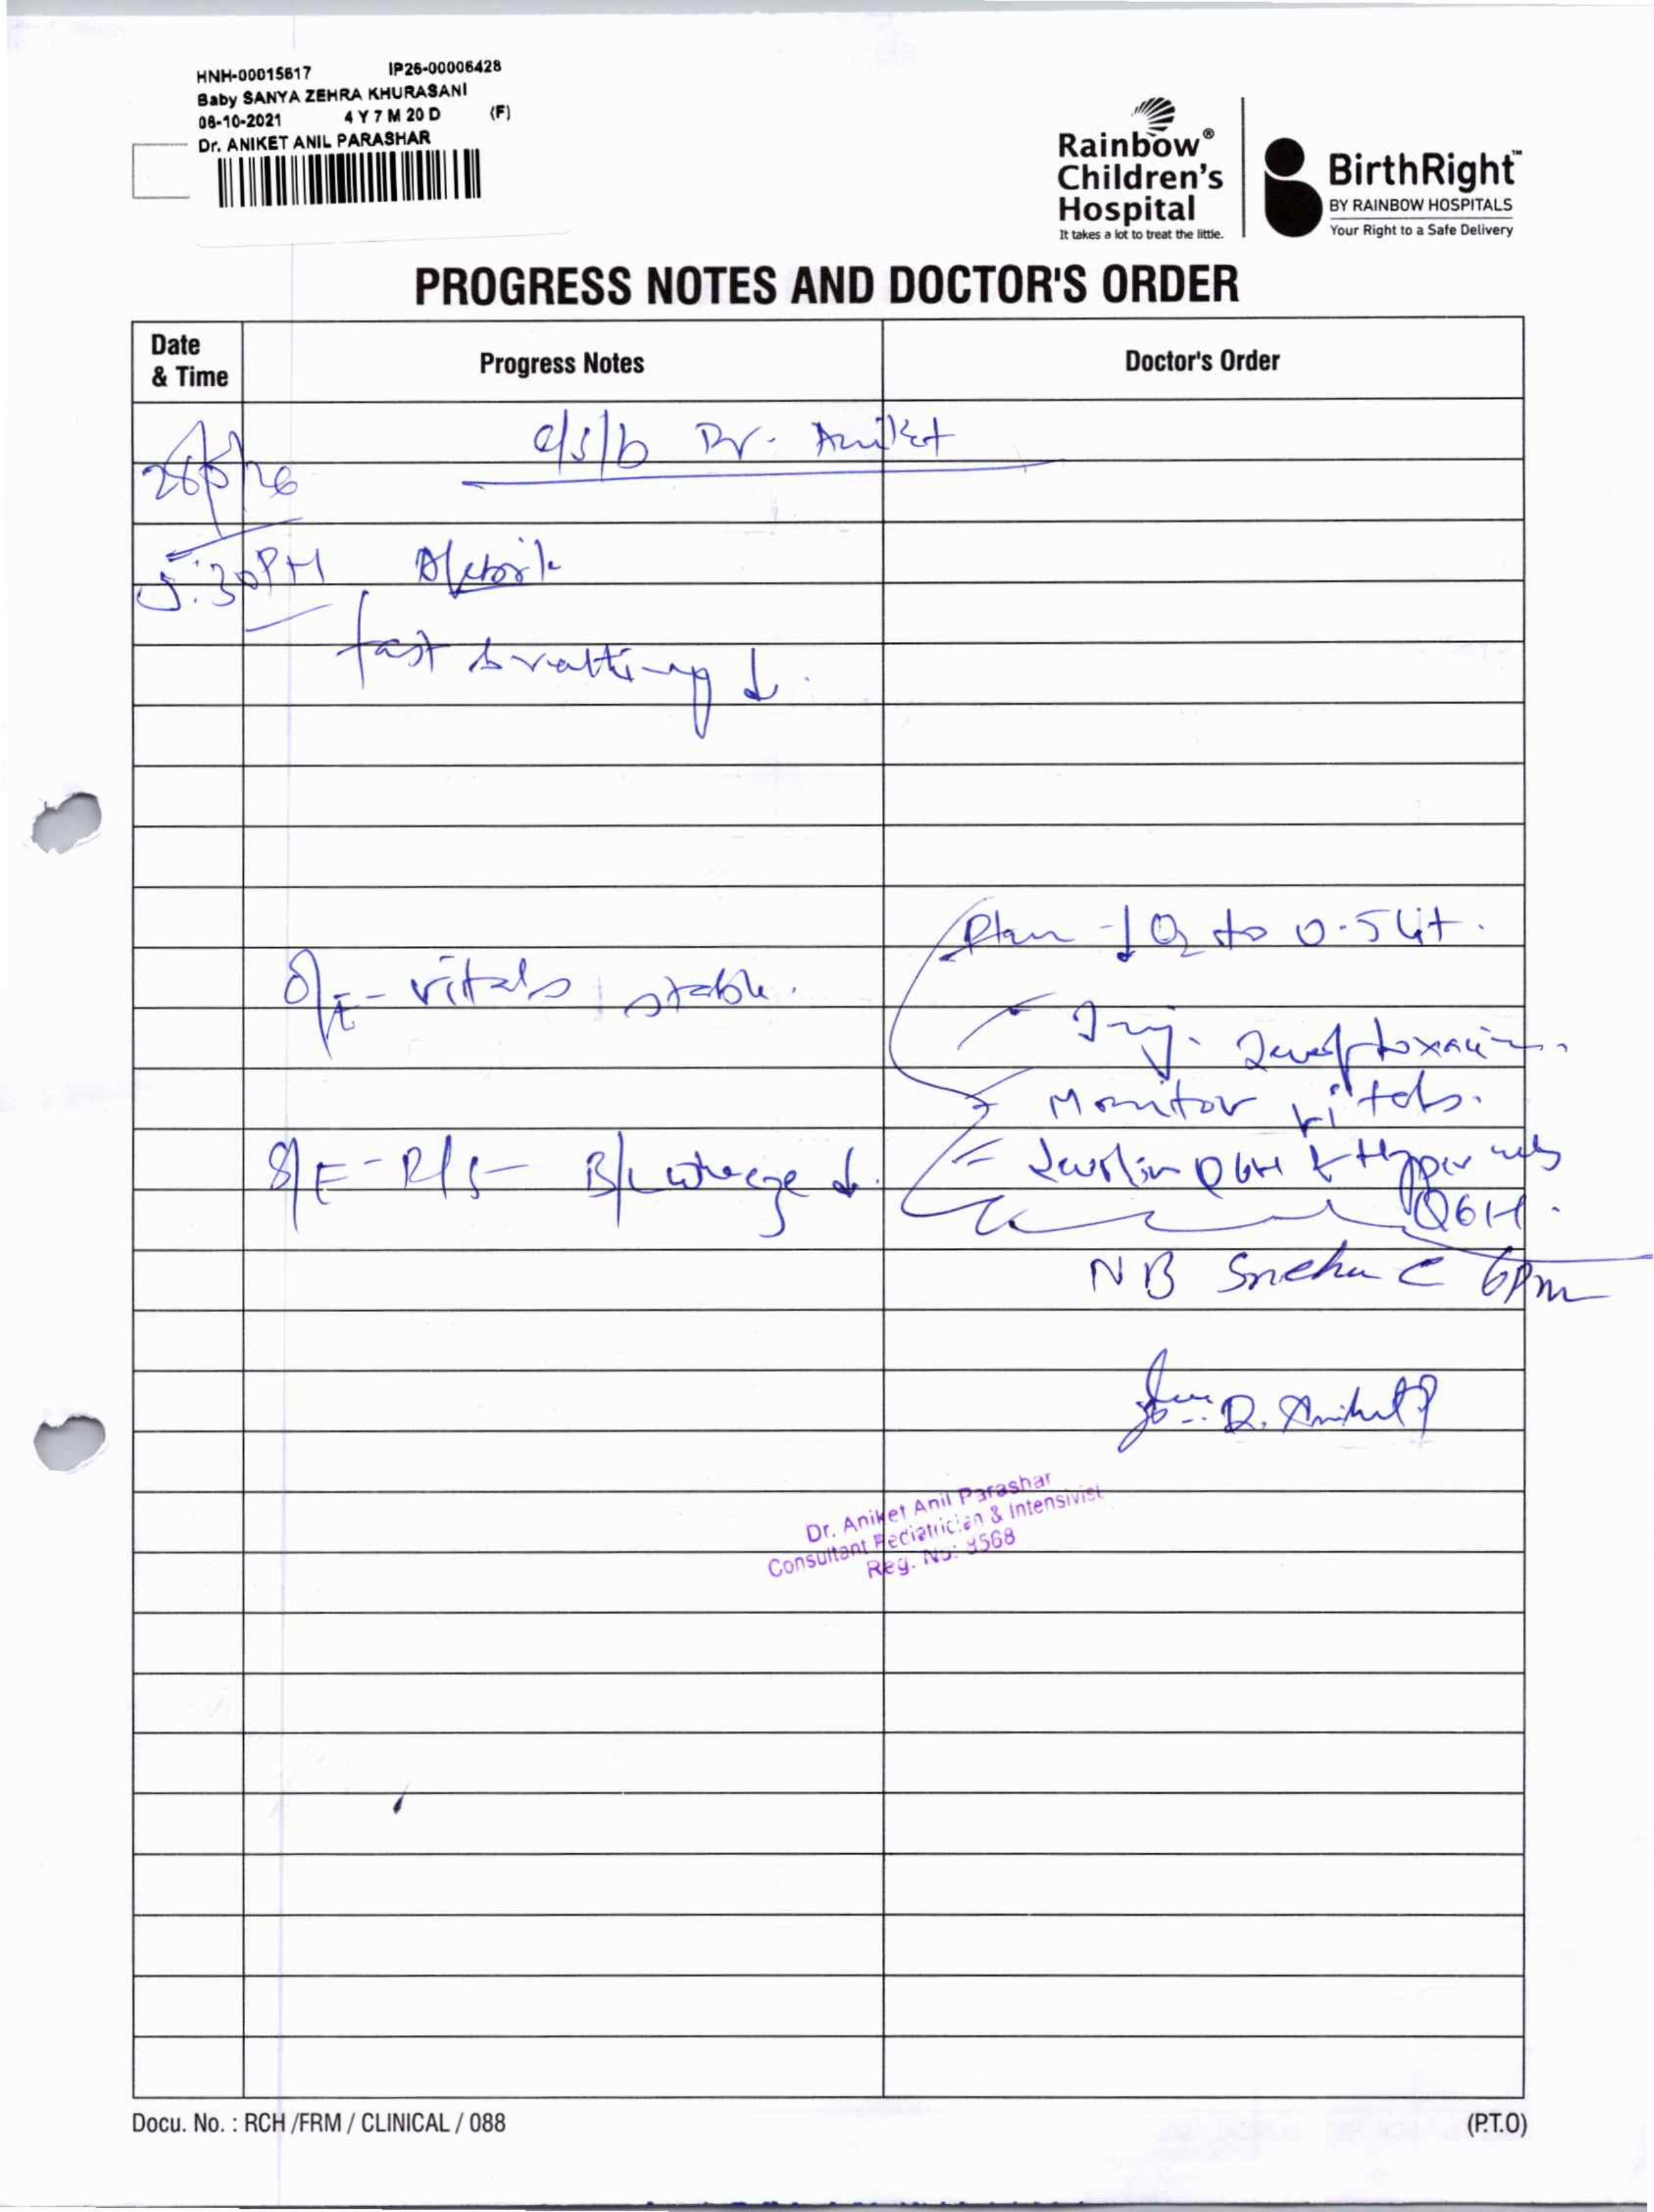 HNH-00015617 IP26-00006428
Baby SANYA ZEHRA KHURASANI
08-10-2021 4 Y 7 M 20 D (F)
Dr. ANIKET ANIL PARASHAR
Rainbow®
Children's
Hospital
It takes a lot to treat the little.
BirthRight™
BY RAINBOW HOSPITALS
Your Right to a Safe Delivery
PROGRESS NOTES AND DOCTOR'S ORDER
Date & Time
Progress Notes
Doctor's Order
c/s/b Dr. Aniket
28/5/26
5:30PM Afebrile
fast breathing ↓.
Plan - ↓ O2 to 0.5 lit.
O/E - vitals stable.
Inj.
Monitor vitals.
S/E - R/S - B/L wheeze ↓.
Q6H & Hyper neb
Q6H.
NB Sneha 6pm
Dr. Aniket
Dr. Aniket Anil Parashar
Consultant Pediatrician & Intensivist
Reg. No:
Docu. No. : RCH /FRM / CLINICAL / 088
(P.T.O)